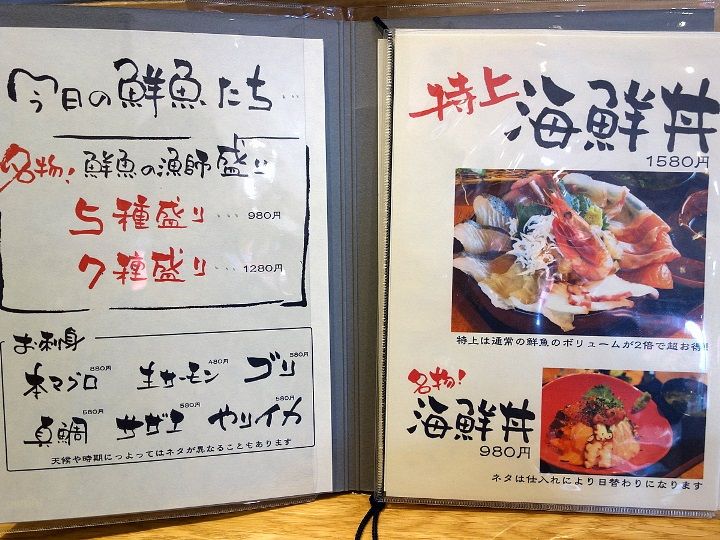 今日の鮮魚たち…
名物!鮮魚の漁師盛り
5種盛り…980円
7種盛り…1280円
お刺身
本マグロ 880円 生サーモン 480円 ブリ 580円
真鯛 580円 サザエ 580円 やりイカ 580円
天候や時期につよってはネタが異なることもあります
特上海鮮丼
1580円
特上は通常の鮮魚のボリュームが2倍で超お得!
名物!
海鮮丼
980円
ネタは仕入れにより日替わりになります